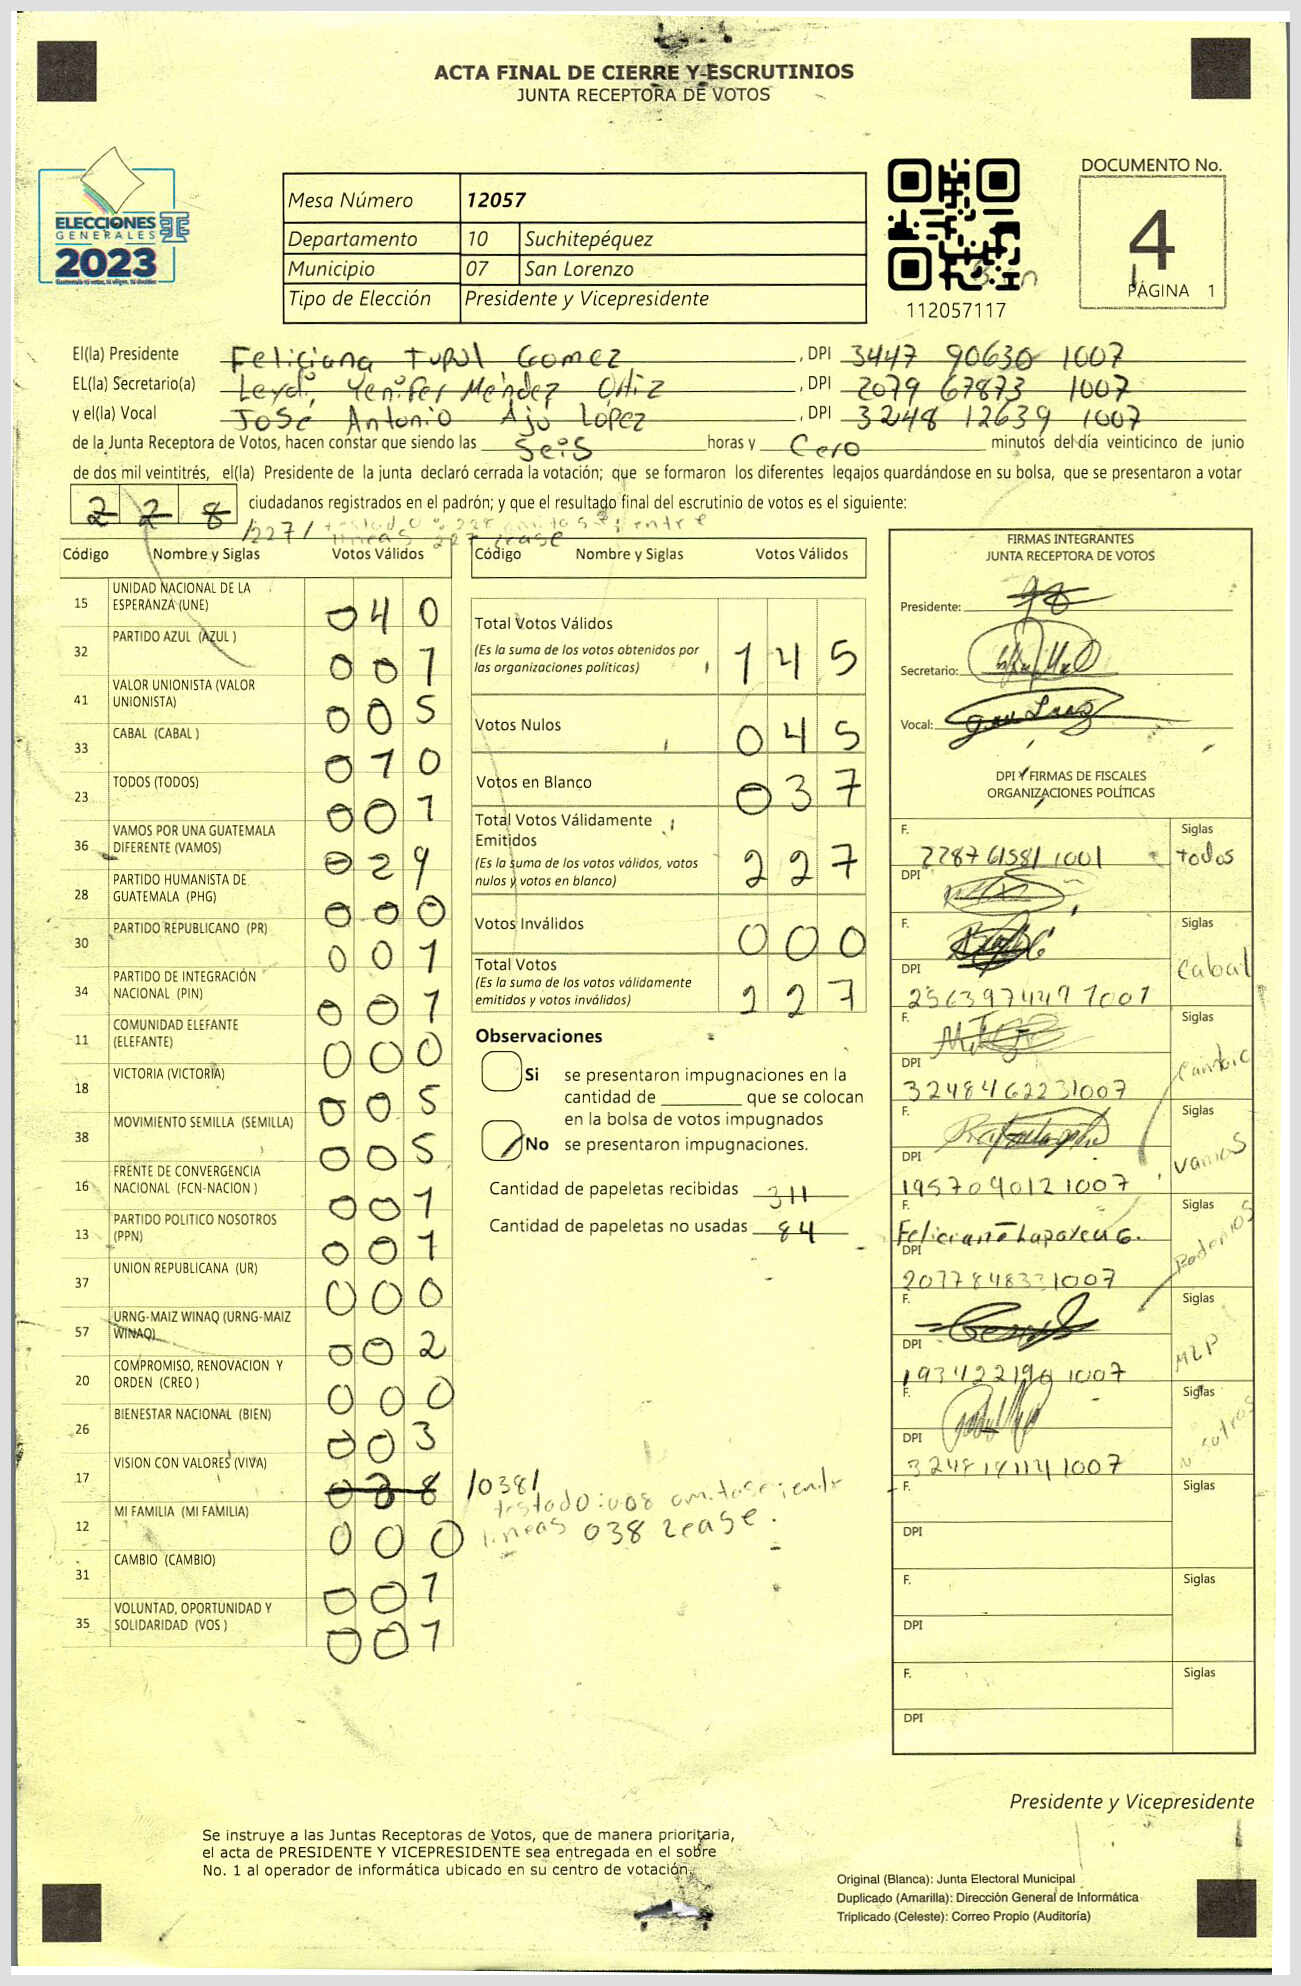 ACTA FINAL DE CIERRE Y ESCRUTINIOS
JUNTA RECEPTORA DE VOTOS
ELECCIONES
GENERALES
2023
Mesa Número 12057
Departamento 10 Suchitepéquez
Municipio 07 San Lorenzo
Tipo de Elección Presidente y Vicepresidente
112057117
DOCUMENTO No.
4
PÁGINA 1
El(la) Presidente Feliciana Tupul Gomez, DPI 3447 90630 1007
EL(la) Secretario(a) Leydi Yenifer Méndez Ortiz, DPI 2079 67873 1007
y el(la) Vocal José Antonio Ajú López, DPI 3248 12639 1007
de la Junta Receptora de Votos, hacen constar que siendo las Seis horas y Cero minutos del día veinticinco de junio
de dos mil veintitrés, el(la) Presidente de la junta declaró cerrada la votación; que se formaron los diferentes legajos quardándose en su bolsa, que se presentaron a votar
228 ciudadanos registrados en el padrón; y que el resultado final del escrutinio de votos es el siguiente:
/227/ testado 228 entre
lineas 227 Lease
Código Nombre y Siglas Votos Válidos
15 UNIDAD NACIONAL DE LA ESPERANZA (UNE) 040
32 PARTIDO AZUL (AZUL ) 001
41 VALOR UNIONISTA (VALOR UNIONISTA) 005
33 CABAL (CABAL ) 010
23 TODOS (TODOS) 001
36 VAMOS POR UNA GUATEMALA DIFERENTE (VAMOS) 029
28 PARTIDO HUMANISTA DE GUATEMALA (PHG) 000
30 PARTIDO REPUBLICANO (PR) 001
34 PARTIDO DE INTEGRACIÓN NACIONAL (PIN) 001
11 COMUNIDAD ELEFANTE (ELEFANTE) 000
18 VICTORIA (VICTORIA) 005
38 MOVIMIENTO SEMILLA (SEMILLA) 005
16 FRENTE DE CONVERGENCIA NACIONAL (FCN-NACION ) 001
13 PARTIDO POLITICO NOSOTROS (PPN) 001
37 UNION REPUBLICANA (UR) 000
57 URNG-MAIZ WINAQ (URNG-MAIZ WINAQ) 002
20 COMPROMISO, RENOVACION Y ORDEN (CREO ) 000
26 BIENESTAR NACIONAL (BIEN) 003
17 VISION CON VALORES (VIVA) 038 /038/
testado: 008 entre
lineas 038 Lease.
12 MI FAMILIA (MI FAMILIA) 000
31 CAMBIO (CAMBIO) 001
35 VOLUNTAD, OPORTUNIDAD Y SOLIDARIDAD (VOS ) 001
Código Nombre y Siglas Votos Válidos
Total Votos Válidos
(Es la suma de los votos obtenidos por
las organizaciones políticas) 145
Votos Nulos 045
Votos en Blanco 037
Total Votos Válidamente
Emitidos
(Es la suma de los votos válidos, votos
nulos y votos en blanco) 227
Votos Inválidos 000
Total Votos
(Es la suma de los votos válidamente
emitidos y votos inválidos) 227
Observaciones
Si se presentaron impugnaciones en la
cantidad de ________ que se colocan
en la bolsa de votos impugnados
No se presentaron impugnaciones.
Cantidad de papeletas recibidas 311
Cantidad de papeletas no usadas 84
FIRMAS INTEGRANTES
JUNTA RECEPTORA DE VOTOS
Presidente:
Secretario:
Vocal:
DPI Y FIRMAS DE FISCALES
ORGANIZACIONES POLÍTICAS
F. Siglas
2287 61581 1001 todos
DPI
F. Siglas
DPI Cabal
2563974497 1001
F. Siglas
DPI Cambio
3248462231007
F. Siglas
DPI Vamos
1957090121007
F. Siglas
DPI Podemos
2077848331007
F. Siglas
DPI MLP
1934221901007
F. Siglas
DPI Nosotros
3248181141007
F. Siglas
DPI
F. Siglas
DPI
F. Siglas
DPI
Presidente y Vicepresidente
Se instruye a las Juntas Receptoras de Votos, que de manera prioritaria,
el acta de PRESIDENTE Y VICEPRESIDENTE sea entregada en el sobre
No. 1 al operador de informática ubicado en su centro de votación.
Original (Blanca): Junta Electoral Municipal
Duplicado (Amarilla): Dirección General de Informática
Triplicado (Celeste): Correo Propio (Auditoría)